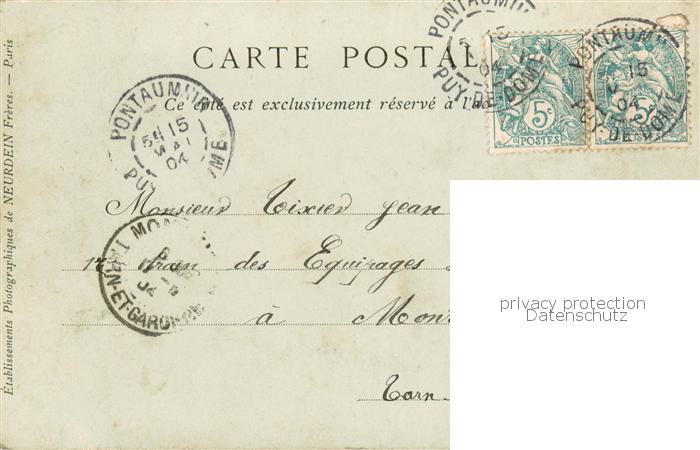 CARTE POSTAL
Ce côté est exclusivement réservé à l'a
PONTAUMUR
5E 15
MAI
04
PUY-DE-DOME
PONTAUMUR
15
04
PUY-DE-DOME
PONTAUMUR
15
04
PUY-DE-DOME
5c
POSTES
5c
POSTES
Monsieur Tixier Jean
Train des Equipages
à Mon
Tarn
MON
04
-ET-GARONNE
Établissements Photographiques de NEURDEIN Frères. — Paris
privacy protection
Datenschutz